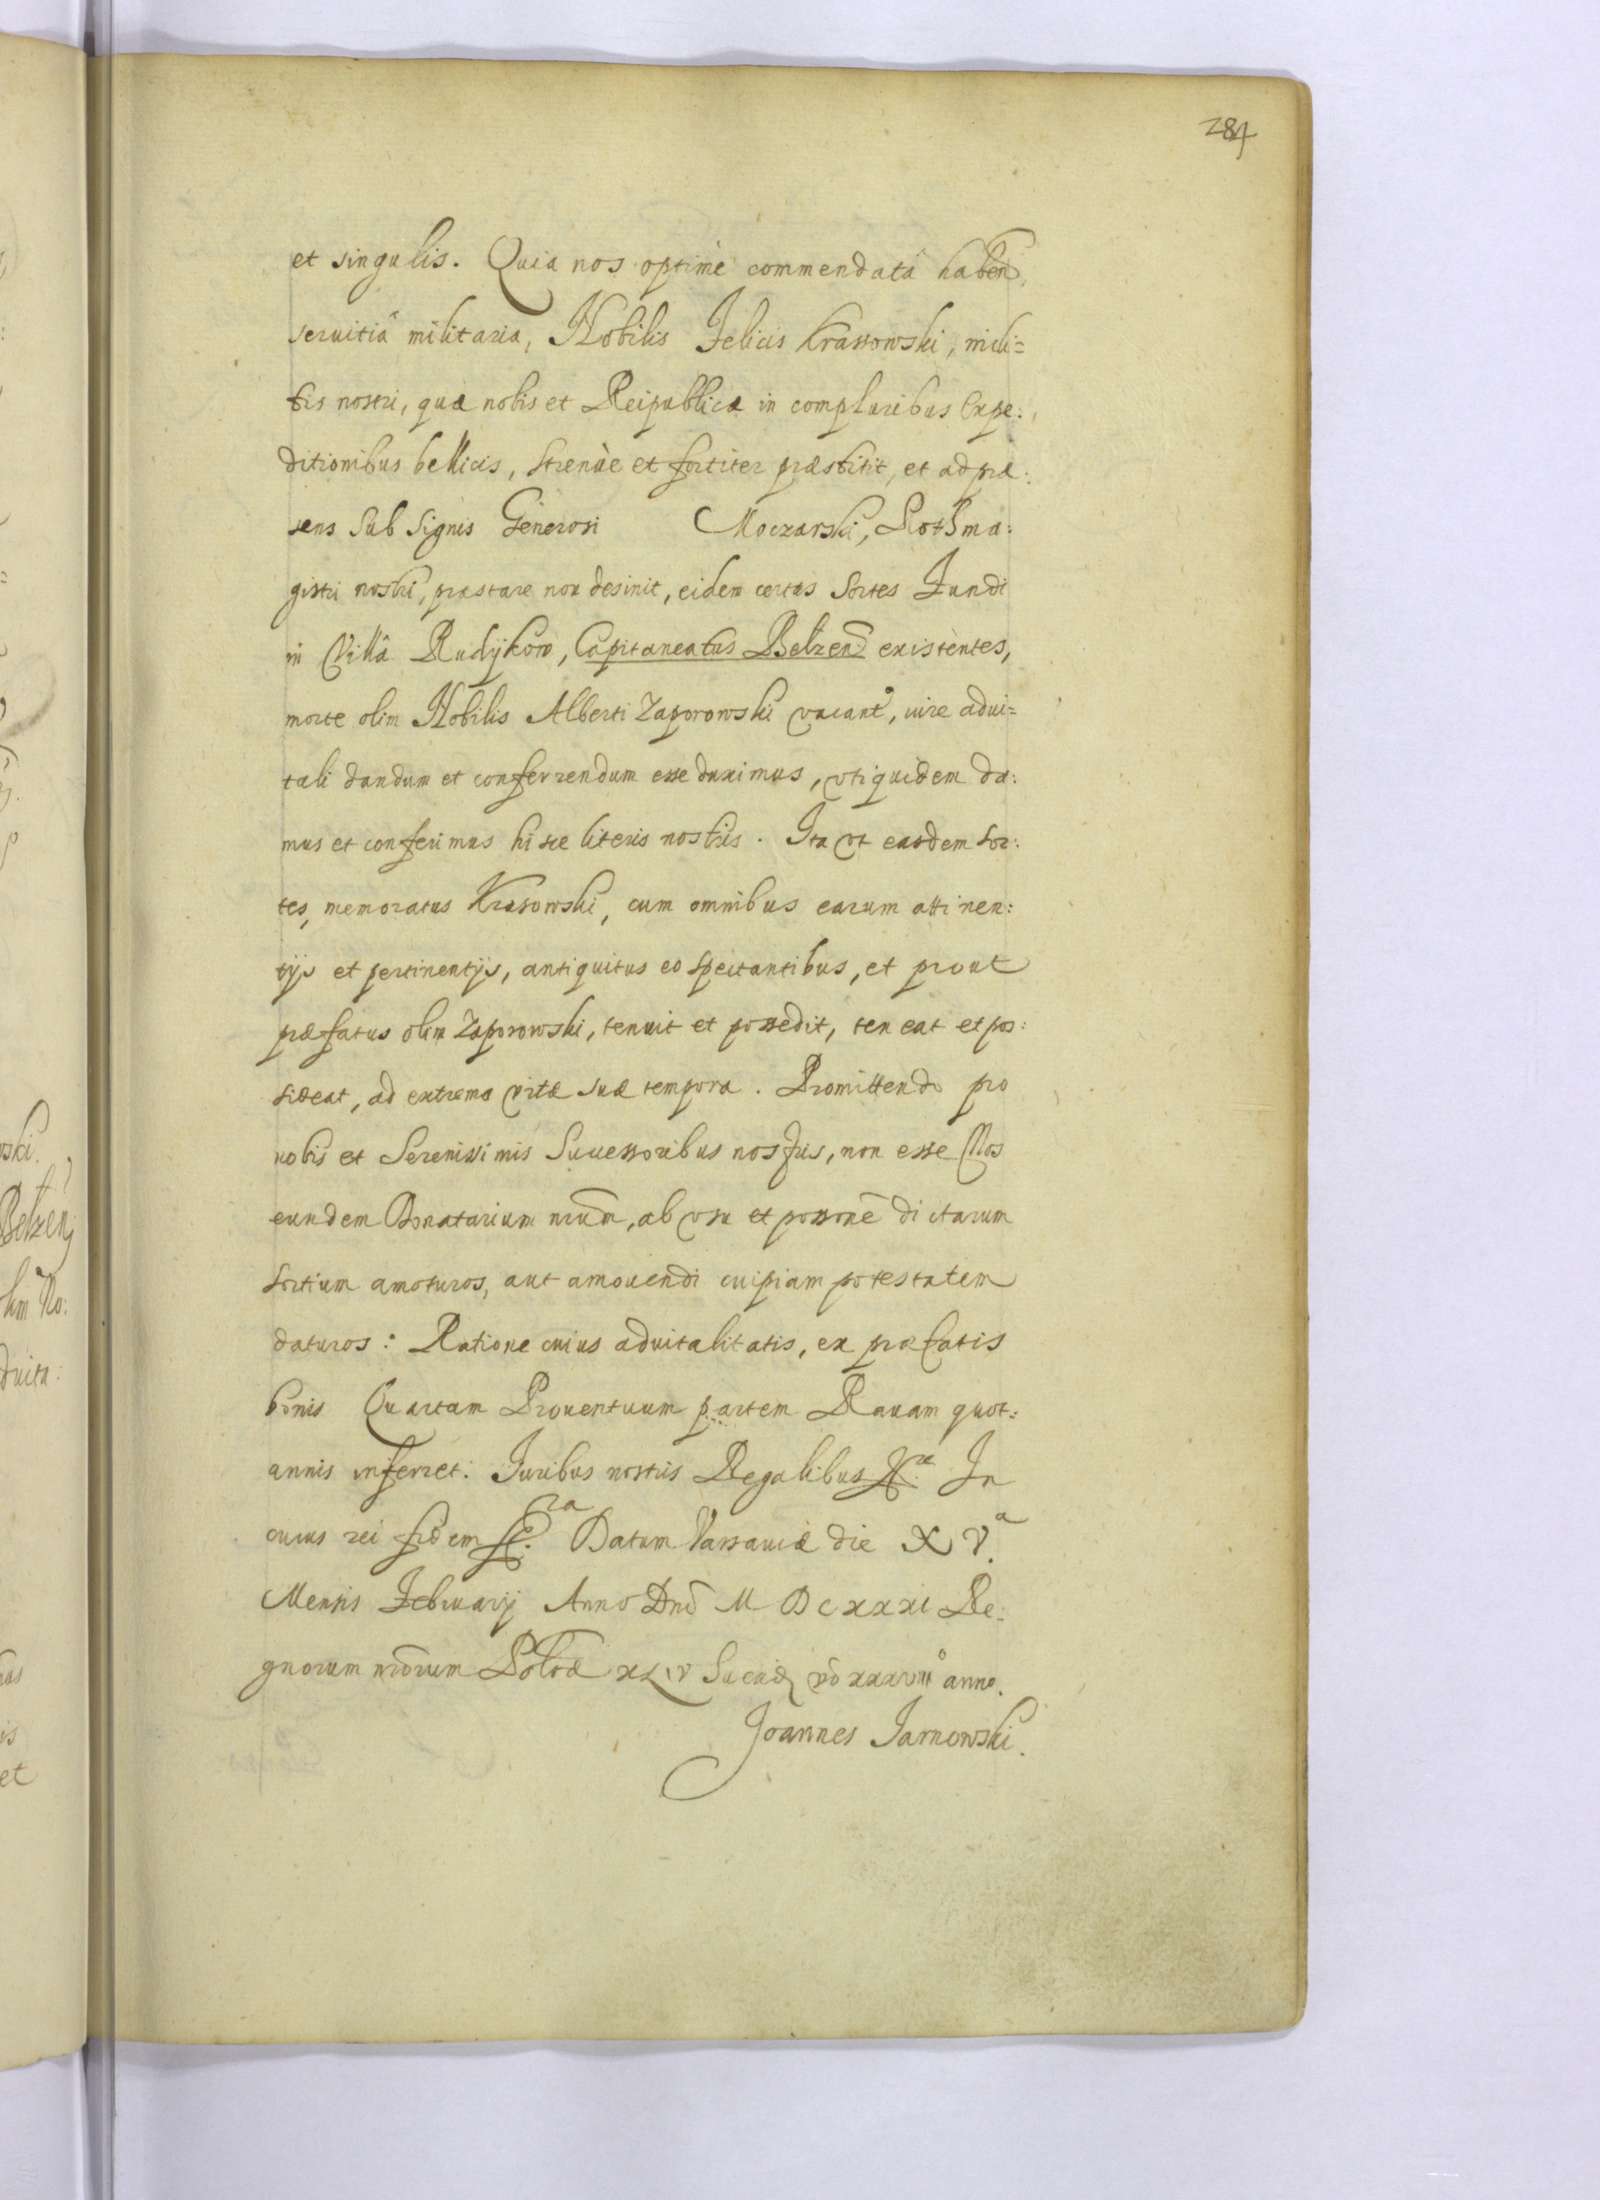 284
et singulis. Quia nos optimè commendatâ habeñ
seruitia militaria, Nobilis Felicis Krassowski, mili=
tis nostri, quæ nobis et Reipublicæ in compluribus Expe:
ditionibus bellicis, strenùe et fortiter præstitit, et ad præ:
sens sub signis Generosi Moczarski, Rothma:
gistri nostri, præstare non desinit, eidem certas sortes Fundi
in Villâ Rudÿkow, Capitaneatus Belzeñ existentes,
morte olim Nobilis Alberti Zaporowski vacant, iure advi=
tali dandum et conferrendum esse duximus, vti quidem da:
mus et conferimus hisce literis nostris. Ita vt easdem sor:
tes, memoratus Krasowski, cum omnibus earum attinen:
tijs et pertinentijs, antiquitus eo spectantibus, et prout
præfatus olim Zaporowski, tenuit et possedit, teneat et pos:
sideat, ad extrema vitæ suæ tempora. Promittendo pro
nobis et Serenissimis Successoribus nostris, non esse Nos
eundem Donatarium nrūm, ab vsu et possonē dictarum
sortium amoturos, aut amouendi cuipiam potestatem
daturos: Ratione cuius aduitalitatis, ex præfatis
bonis Quartam Prouentuum partem Rauam quot:
annis inferret. Juribus nostris Regalibus &c. In
cuius rei fidem &c. Datum Varsauiæ die XV.ª
Mensis Februarij Anno Dnī MDCXXXI Re:
gnorum nrōrum Polōæ XLIV Sueciæ vō XXXVIIIº anno.
Joannes Jarnowski.
wski.
Belzeñ
lim No:
dvita:
is
et